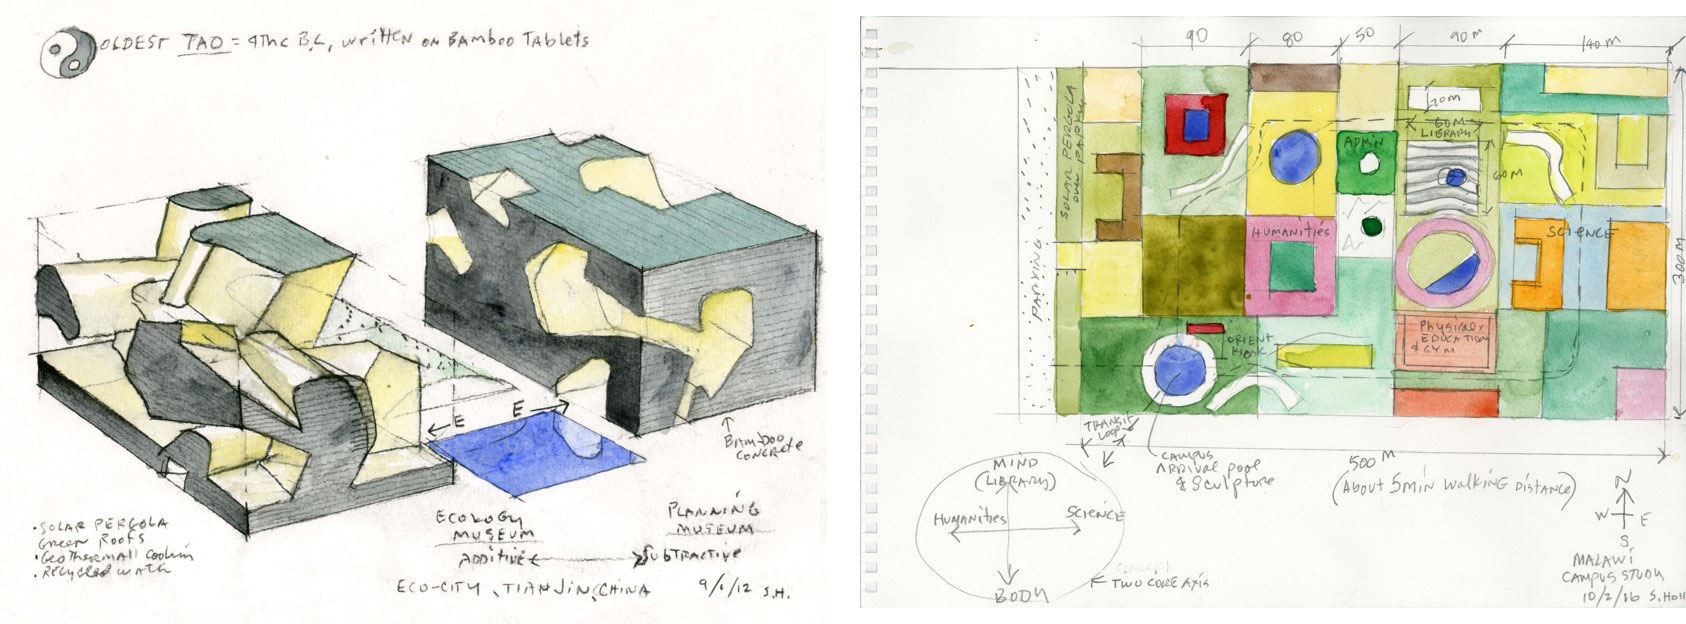 OLDEST TAO = 4THC B.C, WRITTEN ON BAMBOO TABLETS
E
E
BAMBOO
CONCRETE
ECOLOGY
MUSEUM
ADDITIVE
PLANNING
MUSEUM
SUBTRACTIVE
• SOLAR PERGOLA
GREEN ROOFS
• GEOTHERMALL COOLIN
• RECYCLED WATER
ECO-CITY, TIANJIN, CHINA 9/1/12 S.H.
90 80 50 90M 140M
SOLAR PERGOLA
OVER PARKING
PARKING
20M
60M
LIBRARY
60M
ADMIN
HUMANITIES
SCIENCE
300M
PHYSICAL
EDUCATION
& GYM
ORIENT
KIOSK
TRANSIT
LOOP
CAMPUS
ARRIVAL POOL
& SCULPTURE
500M
(ABOUT 5MIN WALKING DISTANCE)
MIND
(LIBRARY)
HUMANITIES
SCIENCE
BODY
CONCEPT
TWO CORE AXIS
N
W E
S
MALAWI
CAMPUS STUDY
10/2/16 S.HOLL